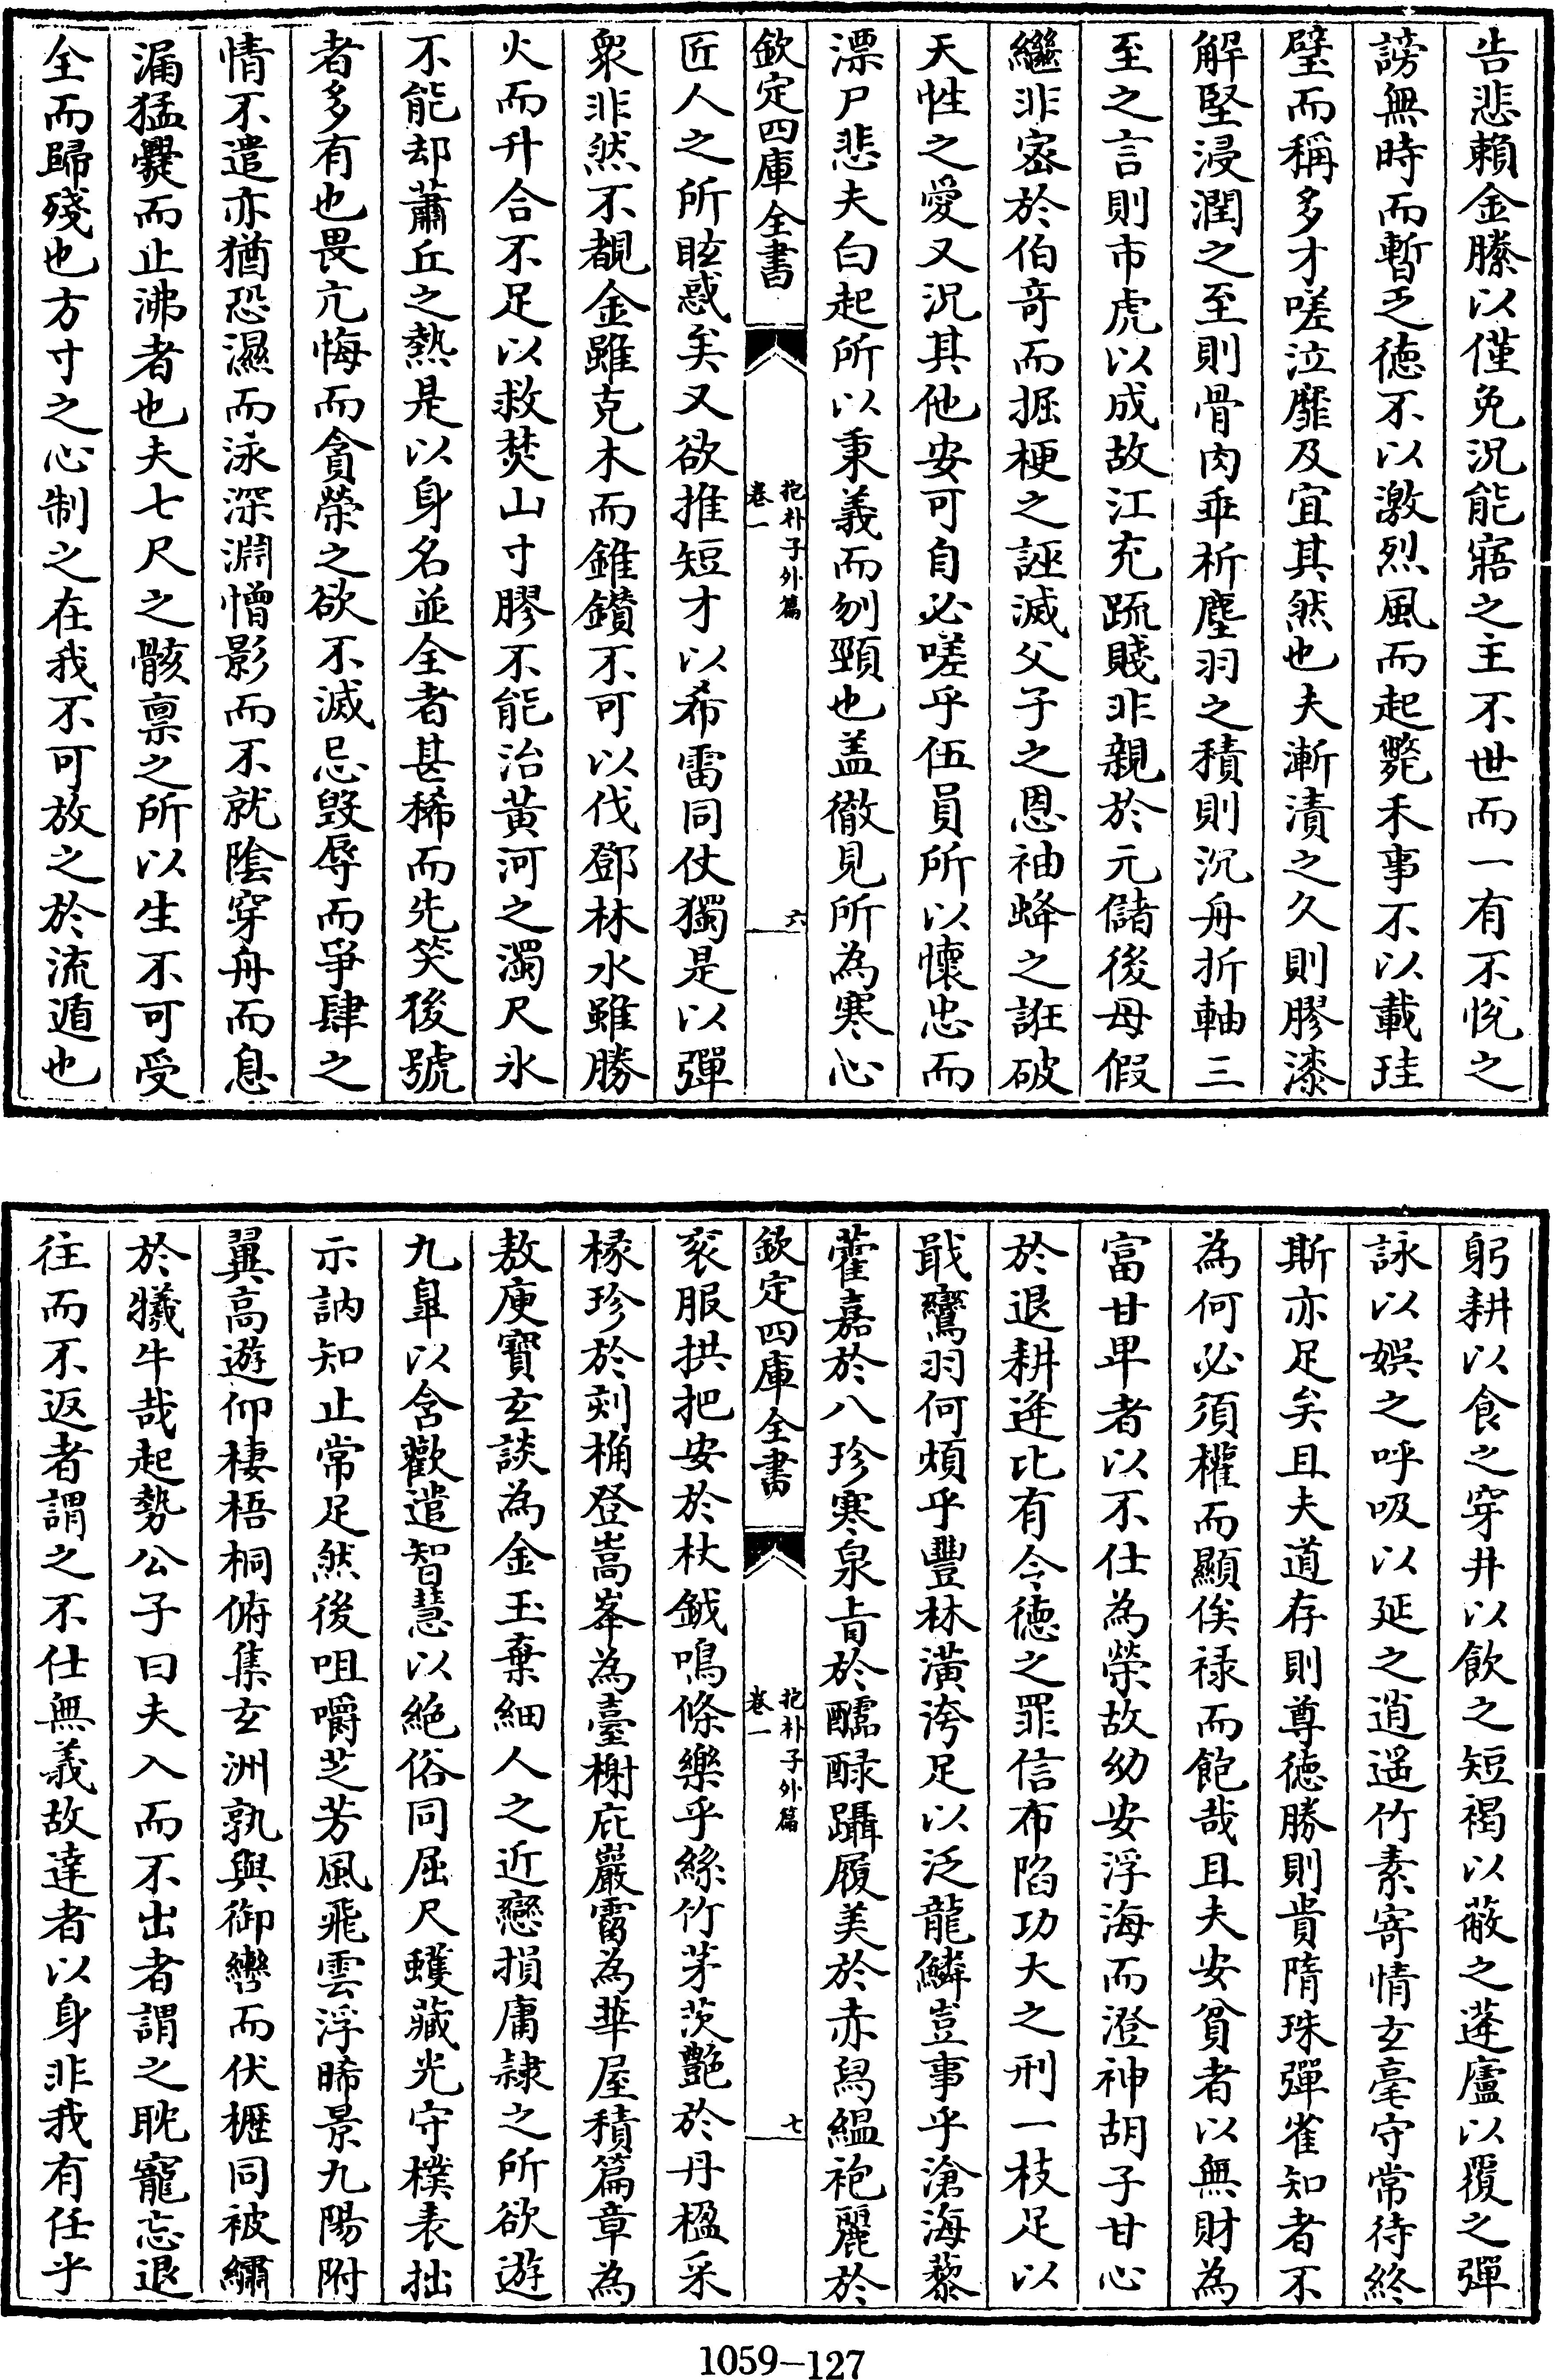 告悲賴金縢以僅免況能寤之主不世而一有不悅之
謗無時而暫乏德不以激烈風而起斃禾事不以載珪
璧而稱多才嗟泣靡及宜其然也夫漸漬之久則膠漆
解堅浸潤之至則骨肉乖析塵羽之積則沉舟折軸三
至之言則市虎以成故江充疏賤非親於元儲後母假
繼非密於伯奇而掘梗之誣滅父子之恩袖蜂之誑破
天性之愛又況其他安可自必嗟乎伍員所以懷忠而
漂尸悲夫白起所以秉義而刎頸也盖徹見所為寒心
欽定四庫全書
抱朴子外篇
卷一
六
匠人之所眩惑矣又欲推短才以希雷同仗獨是以彈
衆非然不覩金雖克木而錐鑽不可以伐鄧林水雖勝
火而升合不足以救焚山寸膠不能治黄河之濁尺水
不能却蕭丘之熱是以身名並全者甚稀而先笑後號
者多有也畏亢悔而貪榮之欲不滅忌毀辱而爭肆之
情不遣亦猶恐濕而泳深淵憎影而不就陰穿舟而息
漏猛爨而止沸者也夫七尺之骸禀之所以生不可受
全而歸殘也方寸之心制之在我不可放之於流遁也
躬耕以食之穿井以飲之短褐以蔽之蓬廬以覆之彈
詠以娯之呼吸以延之逍遥竹素寄情玄毫守常待終
斯亦足矣且夫道存則尊德勝則貴隋珠彈雀知者不
為何必須權而顯俟禄而飽哉且夫安貧者以無財為
富甘卑者以不仕為榮故幼安浮海而澄神胡子甘心
於退耕逄比有令德之罪信布陷功大之刑一枝足以
戢鸞羽何煩乎豐林潢洿足以泛龍鱗豈事乎滄海藜
藿嘉於八珍寒泉旨於醽醁躡履美於赤舄緼袍麗於
欽定四庫全書
抱朴子外篇
卷一
七
衮服拱把安於杖鉞鳴條樂乎絲竹茅茨艶於丹楹采
椽珍於刻桷登嵩峯為臺榭庇巖霤為華屋積篇章為
敖庾寳玄談為金玉棄細人之近戀損庸隷之所欲遊
九皐以含歡遣智慧以絶俗同屈尺蠖藏光守樸表拙
示訥知止常足然後咀嚼芝芳風飛雲浮晞景九陽附
翼高遊仰棲梧桐俯集玄洲孰與御轡而伏櫪同被繡
於犧牛哉起勢公子曰夫入而不出者謂之耽寵忘退
往而不返者謂之不仕無義故達者以身非我有任乎
1059-127